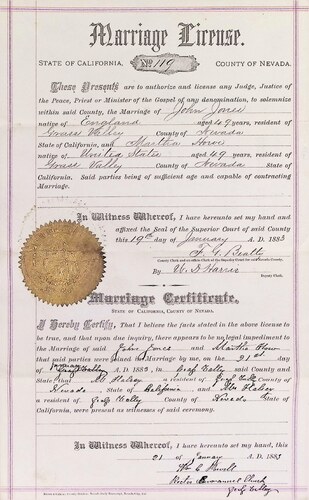 Marriage License.
STATE OF CALIFORNIA, No. 119 COUNTY OF NEVADA.
These Presents are to authorize and license any Judge, Justice of
the Peace, Priest or Minister of the Gospel of any denomination, to solemnize
within said County, the Marriage of John Jones
native of England aged 49 years, resident of
Grass Valley County of Nevada
State of California, and Martha
native of United States aged 49 years, resident of
Grass Valley County of Nevada State of
California. Said parties being of sufficient age and capable of contracting
Marriage.
In Witness Whereof, I have hereunto set my hand and
affixed the Seal of the Superior Court of said County
this 19th day of January A. D. 1883
F. G. Beatty
County Clerk and ex-officio Clerk of the Superior Court in and for Nevada County.
By Harris
Deputy Clerk.
Marriage Certificate.
STATE OF CALIFORNIA, COUNTY OF NEVADA.
I Hereby Certify, That I believe the facts stated in the above license to
be true, and that upon due inquiry, there appears to be no legal impediment to
the Marriage of said John and Martha
that said parties were joined in Marriage by me, on the 21st day
of January A. D. 1883, in Grass Valley County and
State; that a resident of Grass Valley County of
Nevada State of California, and Mrs
a resident of Grass Valley County of Nevada State of
California, were present as witnesses of said ceremony.
In Witness Whereof, I have hereunto set my hand, this
21 of January A. D. 1883
Wm C Powell
Rector Emmanuel Church
Grass Valley